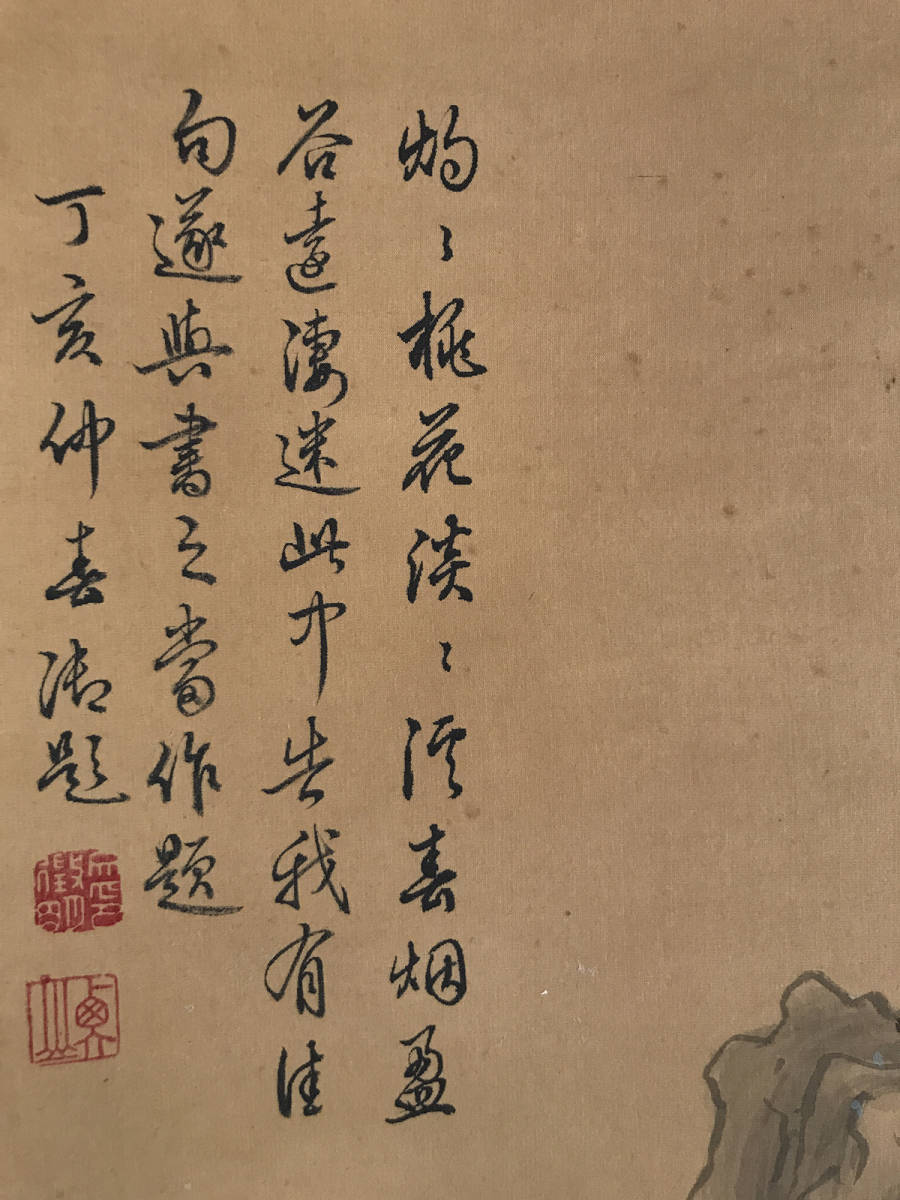 灼〻桃花淡〻溪春烟盈
谷遠淒迷此中告我有佳
句遂與書之當作題
丁亥仲春 題
徵明